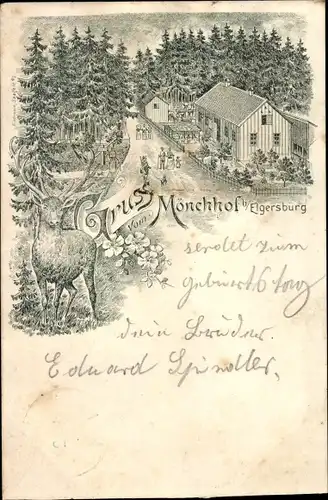 Gruss
vom Mönchhof b/Elgersburg
sendet zum
geburtstag
dein Bruder
Eduard Spindler.